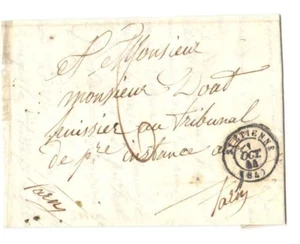 A Monsieur
monsieur Doat
huissier au tribunal
de p.re instance a
Tarn
Tarn
ST ETIENNE
1
OCT
44
(84)